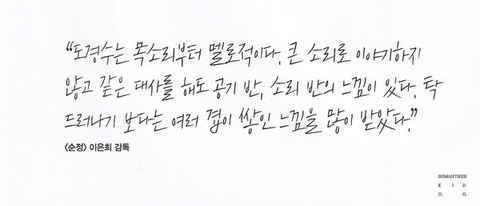 “도경수는 목소리부터 멜로적이다. 큰 소리로 이야기하지
않고 같은 대사를 해도 공기 반, 소리 반의 느낌이 있다. 탁
드러나기 보다는 여러 겹이 쌓인 느낌을 많이 받았다.”
<순정> 이은희 감독
ROMANTICIS
K I D
D. O.